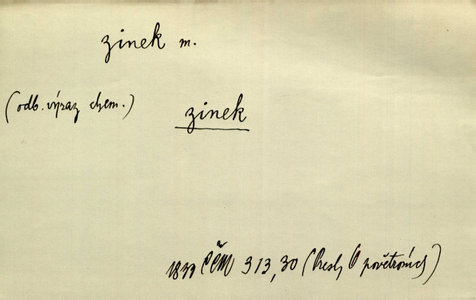 zinek m.
(odb. výraz chem.)
zinek
ČČM 313,30 (Presl, O povětronících)